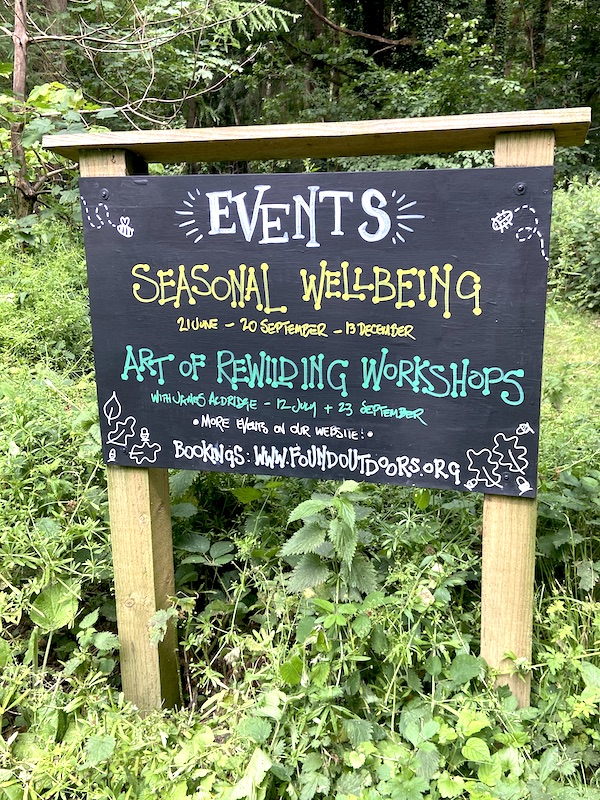 EVENTS
SEASONAL WELLBEING
21 JUNE - 20 SEPTEMBER - 13 DECEMBER
ART OF REWILDING WORKSHOPS
WITH JAMES ALDRIDGE - 12 JULY + 23 SEPTEMBER
• MORE EVENTS ON OUR WEBSITE: •
BOOKINGS: WWW.FOUNDOUTDOORS.ORG